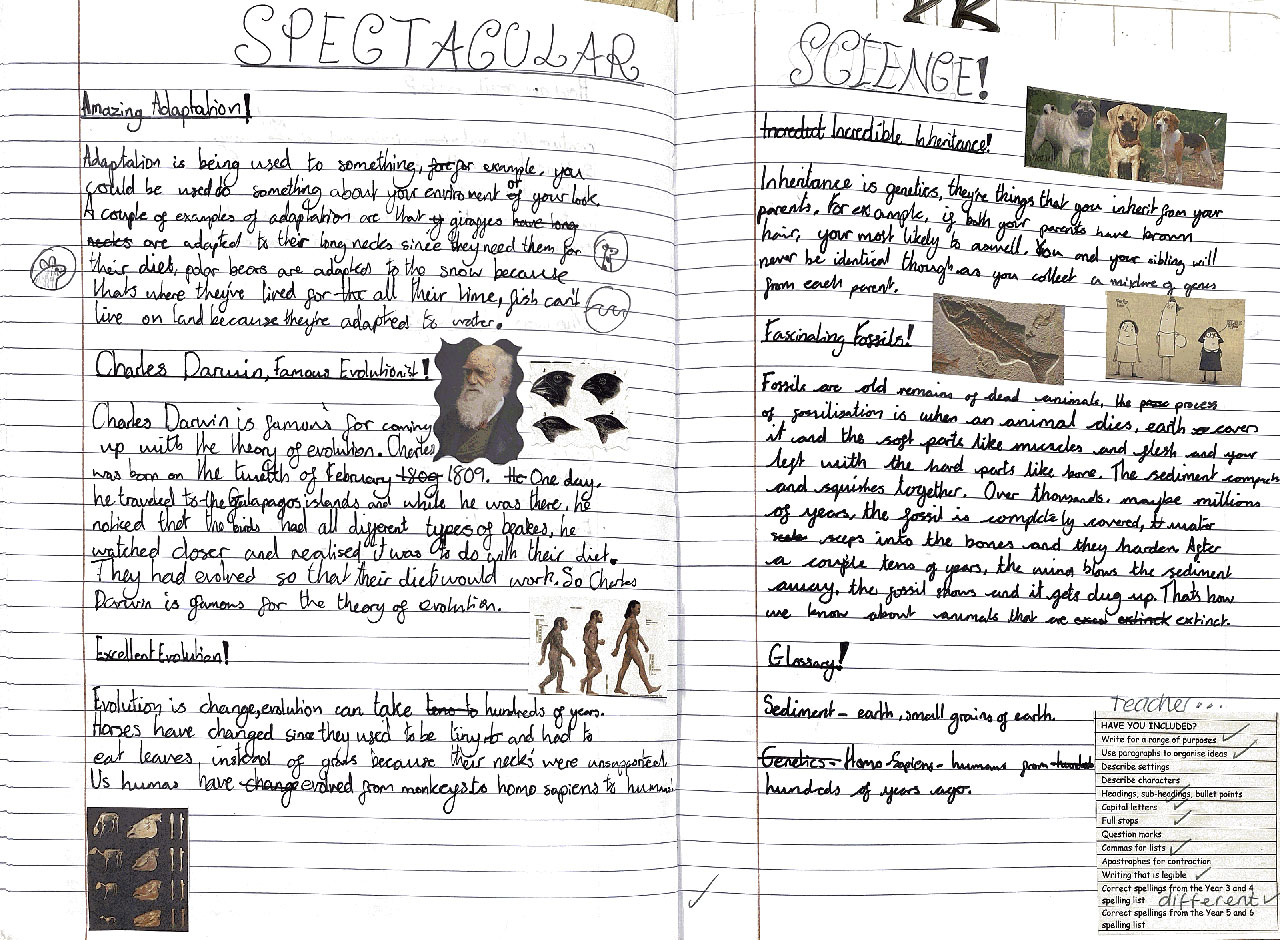 SPECTACULAR
Amazing Adaptation!
Adaptation is being used to something, for for example, you
could be used to something about your enviroment or of your look.
A couple of examples of adaptation are that if giraffes have long
necks are adapted to their long necks since they need them for
their diet, polar bears are adapted to the snow because
thats where they've lived for the all their time, fish can't
live on land because they're adapted to water.
Charles Darwin, Famous Evolutionist!
Charles Darwin is famous for coming
up with the theory of evolution. Charles
was born on the twelth of February 1809 1809. He One day,
he traveled to the Galapagos islands and while he was there, he
noticed that the birds had all different types of beakes, he
watched closer and realised it was to do with their diet.
They had evolved so that their diet would work. So Charles
Darwin is famous for the theory of evolution.
Excellent Evolution!
Evolution is change, evolution can take tens to hundreds of years.
Horses have changed since they used to be tiny and had to
eat leaves, instead of grass because their neck's were unsupported.
Us humas have change evolved from monkeys to homo sapiens to human.
SCIENCE!
Incredact Incredible Inheritance!
Inheritance is genetics, they're things that you inherit from your
parents. For example, if both your parents have brown
hair, your most likely to aswell. You and your sibling will
never be identical though as you collect a mixture of genes
from each parent.
Fascinating Fossils!
Fossils are old remains of dead animals, the process
of fossilisation is when an animal dies, earth covers
it and the soft parts like muscles and flesh and your
left with the hard parts like bone. The sediment compacts
and squishes together. Over thousands, maybe millions
of years, the fossil is completely covered, water
seeps into the bones and they harden After
a couple tens of years, the wind blows the sediment
away, the fossil shows and it gets dug up. Thats how
we know about animals that are extinck extinct.
Glossary!
Sediment - earth, small grains of earth.
Genetics - Homo Sapiens - humans from hundreds
hundreds of years ago.
teacher...
HAVE YOU INCLUDED?
Write for a range of purposes
Use paragraphs to organise ideas
Describe settings
Describe characters
Headings, sub-headings, bullet points
Capital letters
Full stops
Question marks
Commas for lists
Apostrophes for contraction
Writing that is legible
Correct spellings from the Year 3 and 4
spelling list different
Correct spellings from the Year 5 and 6
spelling list